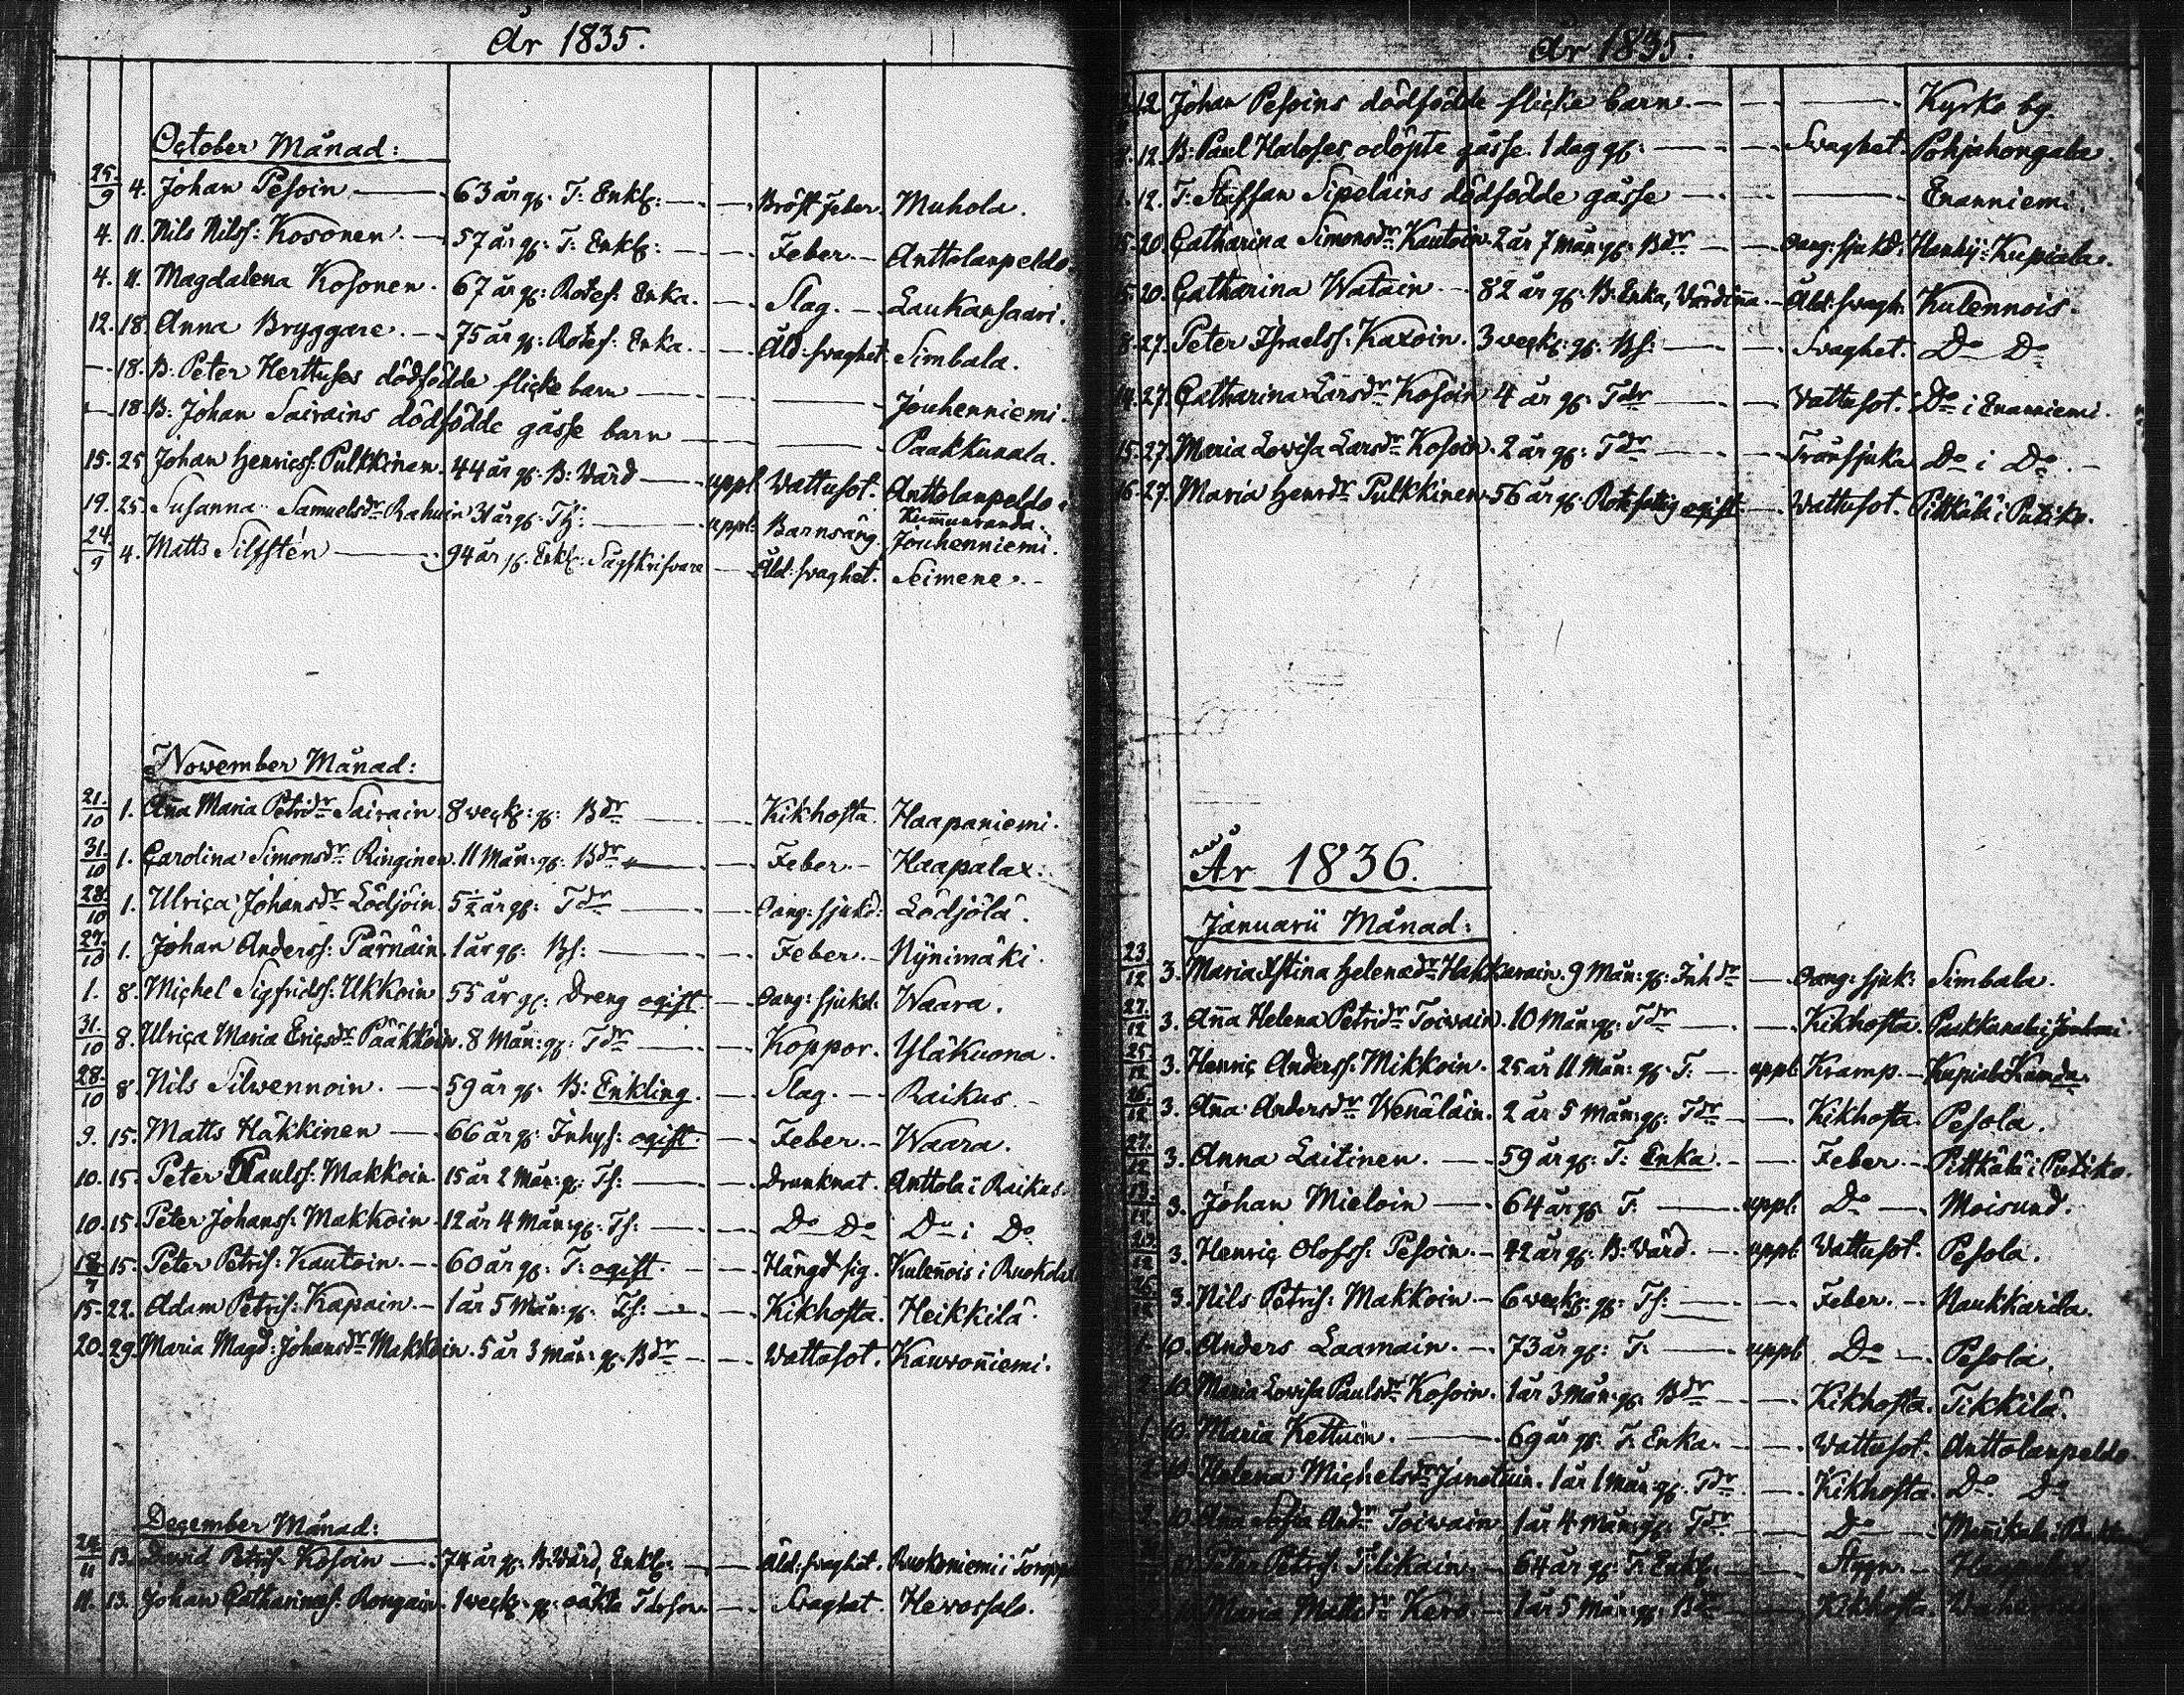 År 1835.
October Månad:
25./9 4. Johan Pesoin — 63 år gl: T: Enkl: — — Bröst Feber. Muhola.
4. 11. Nils Nilss: Kosonen. — 57 år gl: T: Enkl: — — Feber. — Anttolanpeldo.
4. 11. Magdalena Kosonen. 67 år gl: Rotef: Enka. — Slag. — Laukansaari.
12. 18. Anna Bryggare. — 75 år gl: Rotef: Enka. — Åld: svaghet. Simbala.
— 18. B: Peter Herttuses dödfödde flicke barn — — — Jouhenniemi.
— 18. B: Johan Sairains dödfödde gåsse barn — — — Paakkunala.
15. 25. Johan Henricss: Pulkkinen. 44 år gl: B: Värd — uppl: Wattusot. Anttolanpeldo.
19. 25. Susanna Samuelsdr Rahuin 31 år gl: Th: — uppl: Barnsäng. Kummunranda. Jouhenniemi.
24./9 4. Matts Silfstén — 94 år gl. Enkl: Sågskrifvare — Åld: svaghet. Seimene. —
November Månad:
21./10 1. Aña Maria Petridr Sairain. 8 weck: gl: Bdr — — Kikhosta. Haapaniemi.
31./10 1. Carolina Simonsdr Ringinen. 11 Mån: gl: Bdr — — Feber. — Haapalax.
28./10 1. Ulrica Johansdr Lödjöin. 5½ år gl: Tdr — — Oang: sjukd: Lödjölä.
27./10 1. Johan Anderss: Pärnäin. 1 år gl: Bs: — — Feber. — Nÿnimäki.
1. 8. Michel Sigfridss: Ukkoin 55 år gl: Dreng ogift. — Oang: sjukd: Waara.
31./10 8. Ulrica Maria Ericsdr Pääkköin. 8 Mån: gl: Tdr — — Koppor. Yläkuona.
28./10 8. Nils Silwennoin. — 59 år gl: B: Enkling. — Slag. — Raikus. —
9. 15. Matts Häkkinen — 66 år gl: Inhys: ogift. — Feber. — Waara.
10. 15. Peter Paulss: Makkoin 15 år 2 Mån: gl: Ts: — — Drunknat. Anttola i Raikus.
10. 15. Peter Johanss: Makkoin 12 år 4 Mån: gl: Ts: — — Do Do Do i Do
18./7 15. Peter Petris: Kautoin. — 60 år gl: T: ogift. — — Hängdt sig. Kuleñois i Ruokola
15. 22. Adam Petris: Kapain. — 1 år 5 Mån: gl: Ts: — — Kikhosta. Heikkilä.
20. 29. Maria Magd: Johansdr Makkoin. 5 år 3 mån: gl: Bdr — — Wattusot. Kauvoñiemi.
December Månad:
24./11 13. David Petris: Kosoin — 74 år gl: B: Värd, Enkl: — — Åld: svaghet. Ruokoniemi i
11. 13. Johan Catharinass: Rongain. 1 weck: gl: oäkta — Svaghet. Herossalo.
År 1835.
12. Johan Pesoins dödfödde flicke barn — — — Kyrko by.
12. B: Paul Haloses odöpte gåsse. 1 dag gl: — — Svaghet. Pohjahongala.
12. T: Staffan Sipeläins dödfödde gåsse — — — Enanniemi.
20. Catharina Simonsdr Kautoin. 2 år 7 mån: gl: Bdr — — Oang: sjukd: Hanhij: Kupiala.
20. Catharina Watain. — 82 år gl: B: Enka, Värdiña. — Åld: svagh: Kulennois.
27. Peter Israelss: Kaxoin. 3 weck: gl: Bs: — — Svaghet. Do Do
14. 27. Catharina Larsdr Kosoin 4 år gl: Tdr — — Wattusot. Do i Enanniemi.
15. 27. Maria Lowisa Larsdr Kosoin. 2 år gl: Tdr — — Trånsjuka Do i Do —
16. 27. Maria Henrdr Pulkkinen 56 år gl: Rotefattig ogift. — Wattusot. Pitkälä i Putiko.
År 1836.
Januarii Månad:
23./12 3. Maria Xstina Helenædr Hakkarain. 9 Mån: gl: Inhdr — Oang: sjuk: Simbala.
27./12 3. Aña Helena Petridr Toiwain. 10 Mån: gl: Tdr — — Kikhosta. Paakkunala i
25./12 3. Henric Anderss: Mikkoin. 25 år 11 Mån: gl: T: — uppl: Kramp. — Kupiala
26./12 3. Aña Andersdr Wenäläin. 2 år 5 Mån: gl: Tdr — — Kikhosta. Pesola.
27./12 3. Anna Laitinen. — 59 år gl: T: Enka. — — Feber. — Pitkälä i Putiko.
3. Johan Mieloin — 64 år gl: T. — uppl: Do — Moisund.
3. Henric Olofss: Pesoin. — 42 år gl: B: Värd. — uppl: Wattusot. Pesola.
3. Nils Petris: Makkoin — 6 weck: gl: Ts: — — Feber. — Naukkarila.
10. Anders Laamain. — 73 år gl: T. — uppl: Do — Pesola.
10. Maria Lovisa Paulsdr Kosoin. 1 år 3 Mån: gl: Bdr — — Kikhosta. Tikkilä.
10. Maria Kettuin. — 69 år gl: T: Enka. — — Wattusot. Anttolanpeldo.
10. Helena Michelsdr Janatuin. 1 år 1 Mån: gl: Tdr — — Kikhosta. Do Do
10. Aña Sofia Anddr Toiwain 1 år 4 Mån: gl: Tdr — — Do —
Peter Petris: Tilikain. — 64 år gl: T: Enkl: — —
Maria Mattsdr Kero. — 1 år 5 Mån: gl: Bdr — Kikhosta.